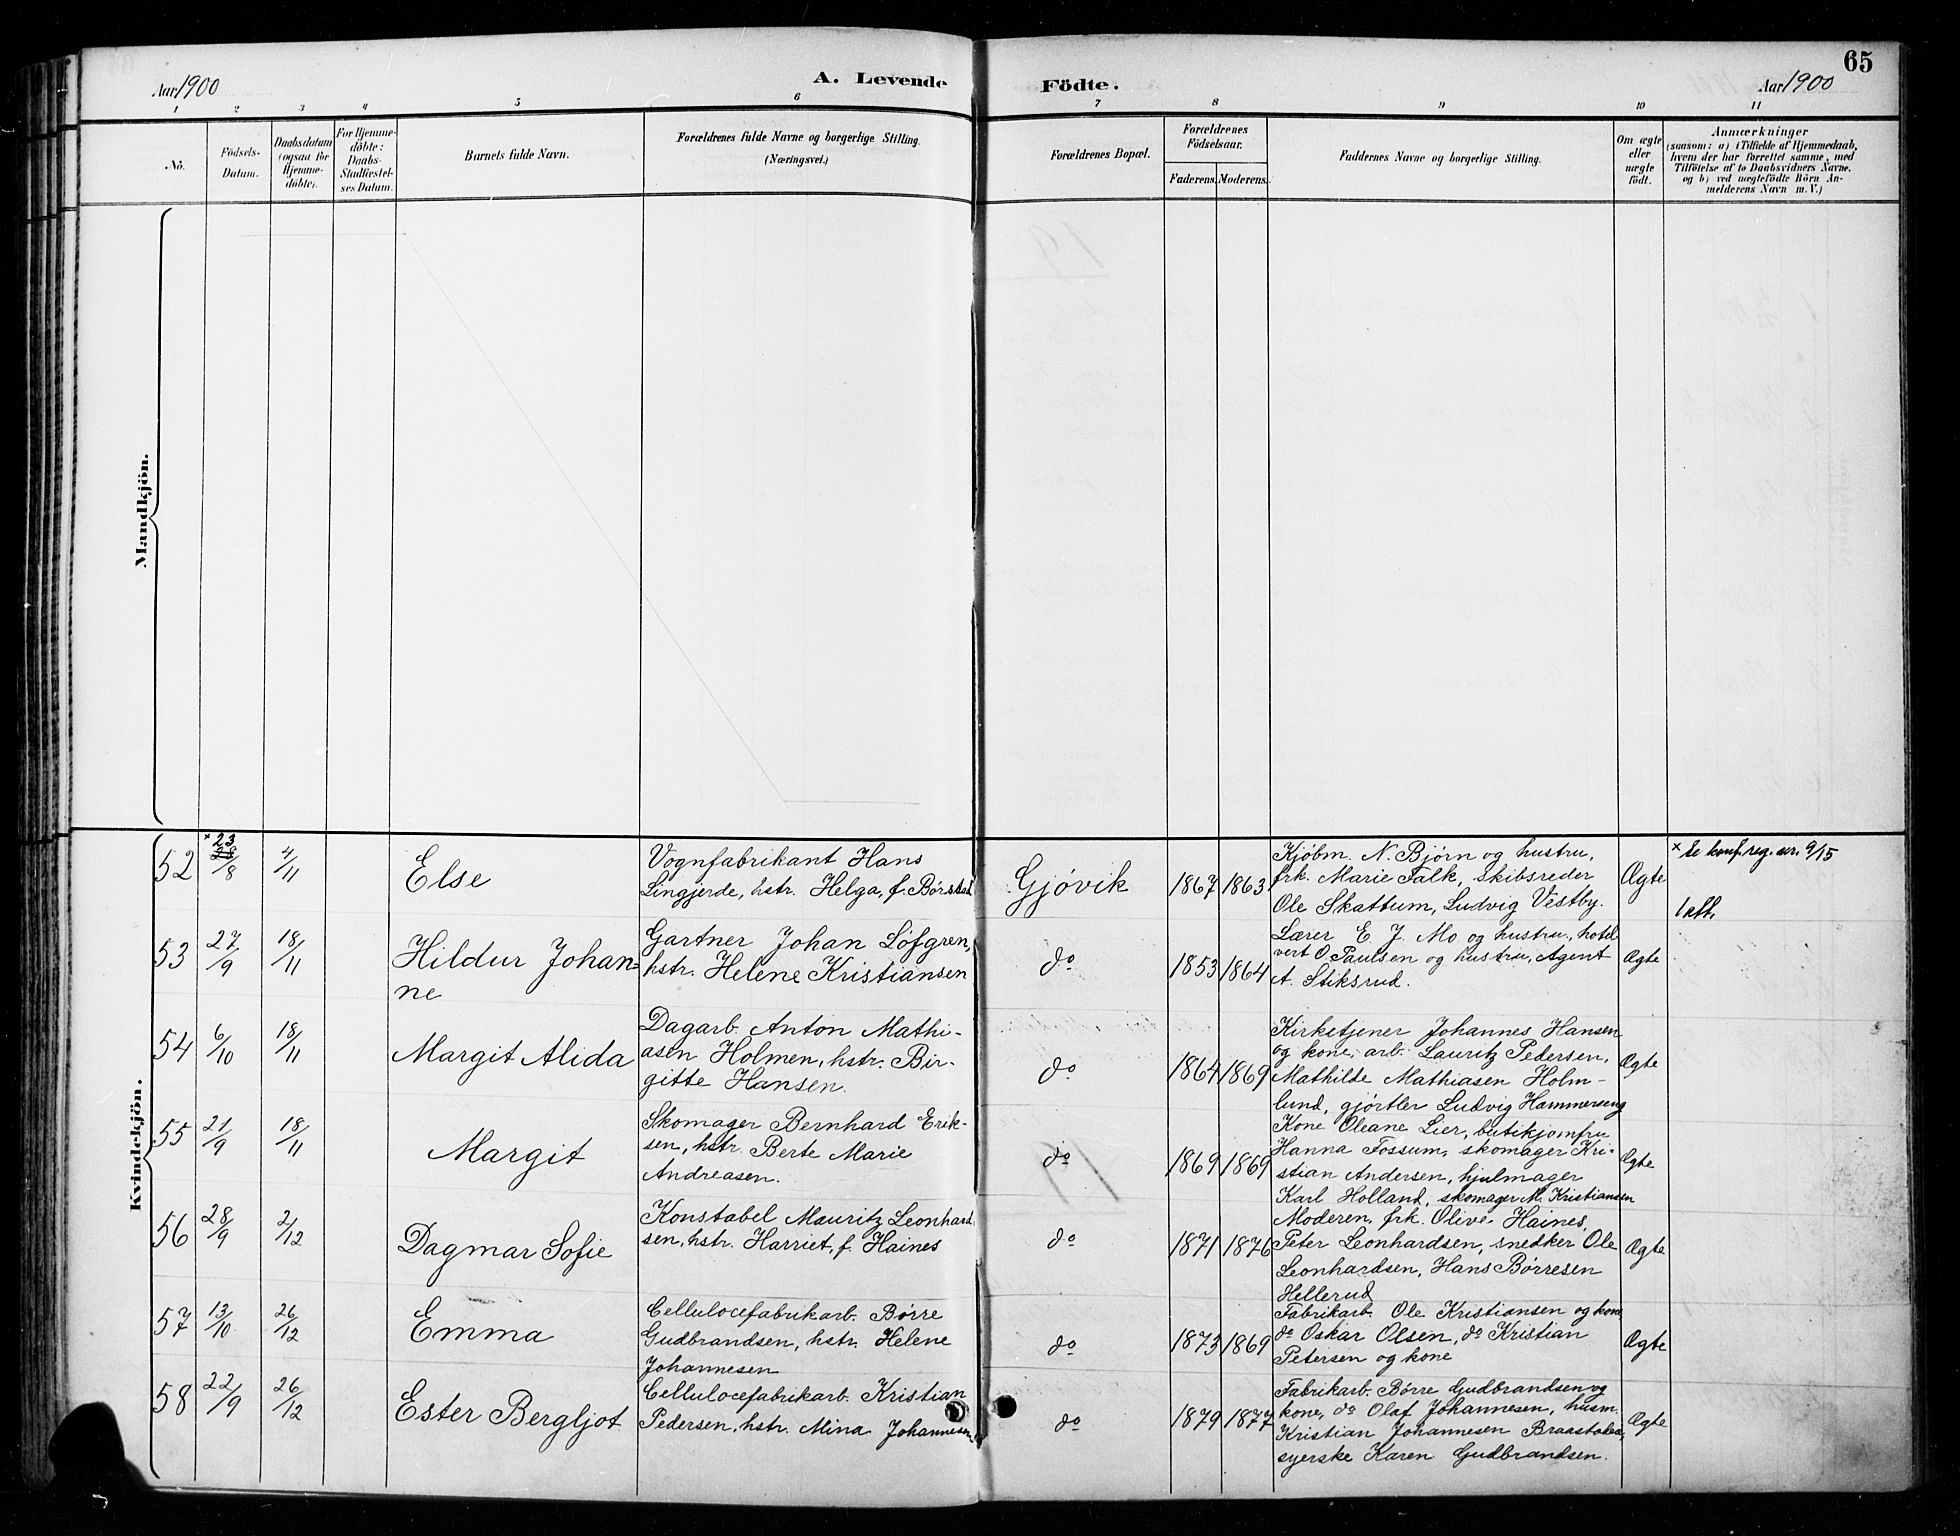 65
Aar 1900
A. Levende
Födte.
Aar 1900
1 2 3 4 5 6 7 8 9 10 11
Nö.
Födsels-
Datum.
Daabsdatum
(ogsaa for
Hjemme-
döbte).
For Hjemme-
döbte:
Daabs-
Stadfæstel-
ses Datum.
Barnets fulde Navn.
Forældrenes fulde Navne og borgerlige Stilling.
(Næringsvei.)
Forældrenes Bopæl.
Forældrenes
Födselsaar.
Faderens. Moderens.
Faddernes Navne og borgerlige Stilling.
Om ægte
eller
uægte
födt.
Anmærkninger
(saasom: a) i Tilfælde af Hjemmedaab,
hvem der har forrettet samme, med
Tilföielse af to Daabsvidners Navne,
og b) ved uægtefödte Börn An-
melderens Navn m. V.)
Mandkjön.
Kvindekjön.
52
× 23
28/8
4/11
Else
Vognfabrikant Hans
Lingjerde, hstr. Helga, f. Børstad
Gjøvik
1867 1863
Kjøbm. N. Bjørn og hustru,
frk. Marie Falk, skibsreder
Ole Skattum, Ludvig Vestby.
Ægte
× Se konf. reg. nr. 9/15
1 att.
53
27/9
18/11
Hildur Johan-
ne
Gartner Johan Løfgren,
hstr. Helene Kristiansen
do
1853 1864
Lærer E. J. Mo og hustru, hotel
vert O. Paulsen og hustru, Agent
A. Stiksrud.
Ægte
54
6/10
18/11
Margit Alida
Dagarb. Anton Mathi-
asen Holmen, hstr. Bir-
gitte Hansen.
do
1864 1869
Kirketjener Johannes Hansen
og kone, arb. Lauritz Pedersen,
Mathilde Mathiasen Holm-
lund, gjørtler Ludvig Hammerseng
Ægte
55
21/9
18/11
Margit
Skomager Bernhard Erik-
sen, hstr. Berte Marie
Andreasen.
do
1869 1869
Kone Oleane Lier, butikjomfru
Hanna Fossum, skomager Kri-
stian Andersen, hjulmager
Karl Holland, skomager M. Kristiansen
Ægte
56
28/9
2/12
Dagmar Sofie
Konstabel Mauritz Leonhard
sen, hstr. Harriet, f. Haines
do
1871 1876
Moderen, frk. Olive Haines,
Peter Leonhardsen, snedker Ole
Leonhardsen, Hans Børresen
Hellerud
Ægte
57
13/10
26/12
Emma
Cellulocefabrikarb. Børre
Gudbrandsen, hstr. Helene
Johannesen
do
1873 1869
Fabrikarb. Ole Kristiansen og kone,
do Oskar Olsen, do Kristian
Petersen og kone
Ægte
58
22/9
26/12
Ester Bergljot
Cellulocefabrikarb. Kristian
Pedersen, hstr. Mina Johannesen
do
1879 1877
Fabrikarb. Børre Gudbrandsen og
kone, do Olaf Johannesen, husm.
Kristian Johannesen
syerske Karen Gudbrandsen.
Ægte